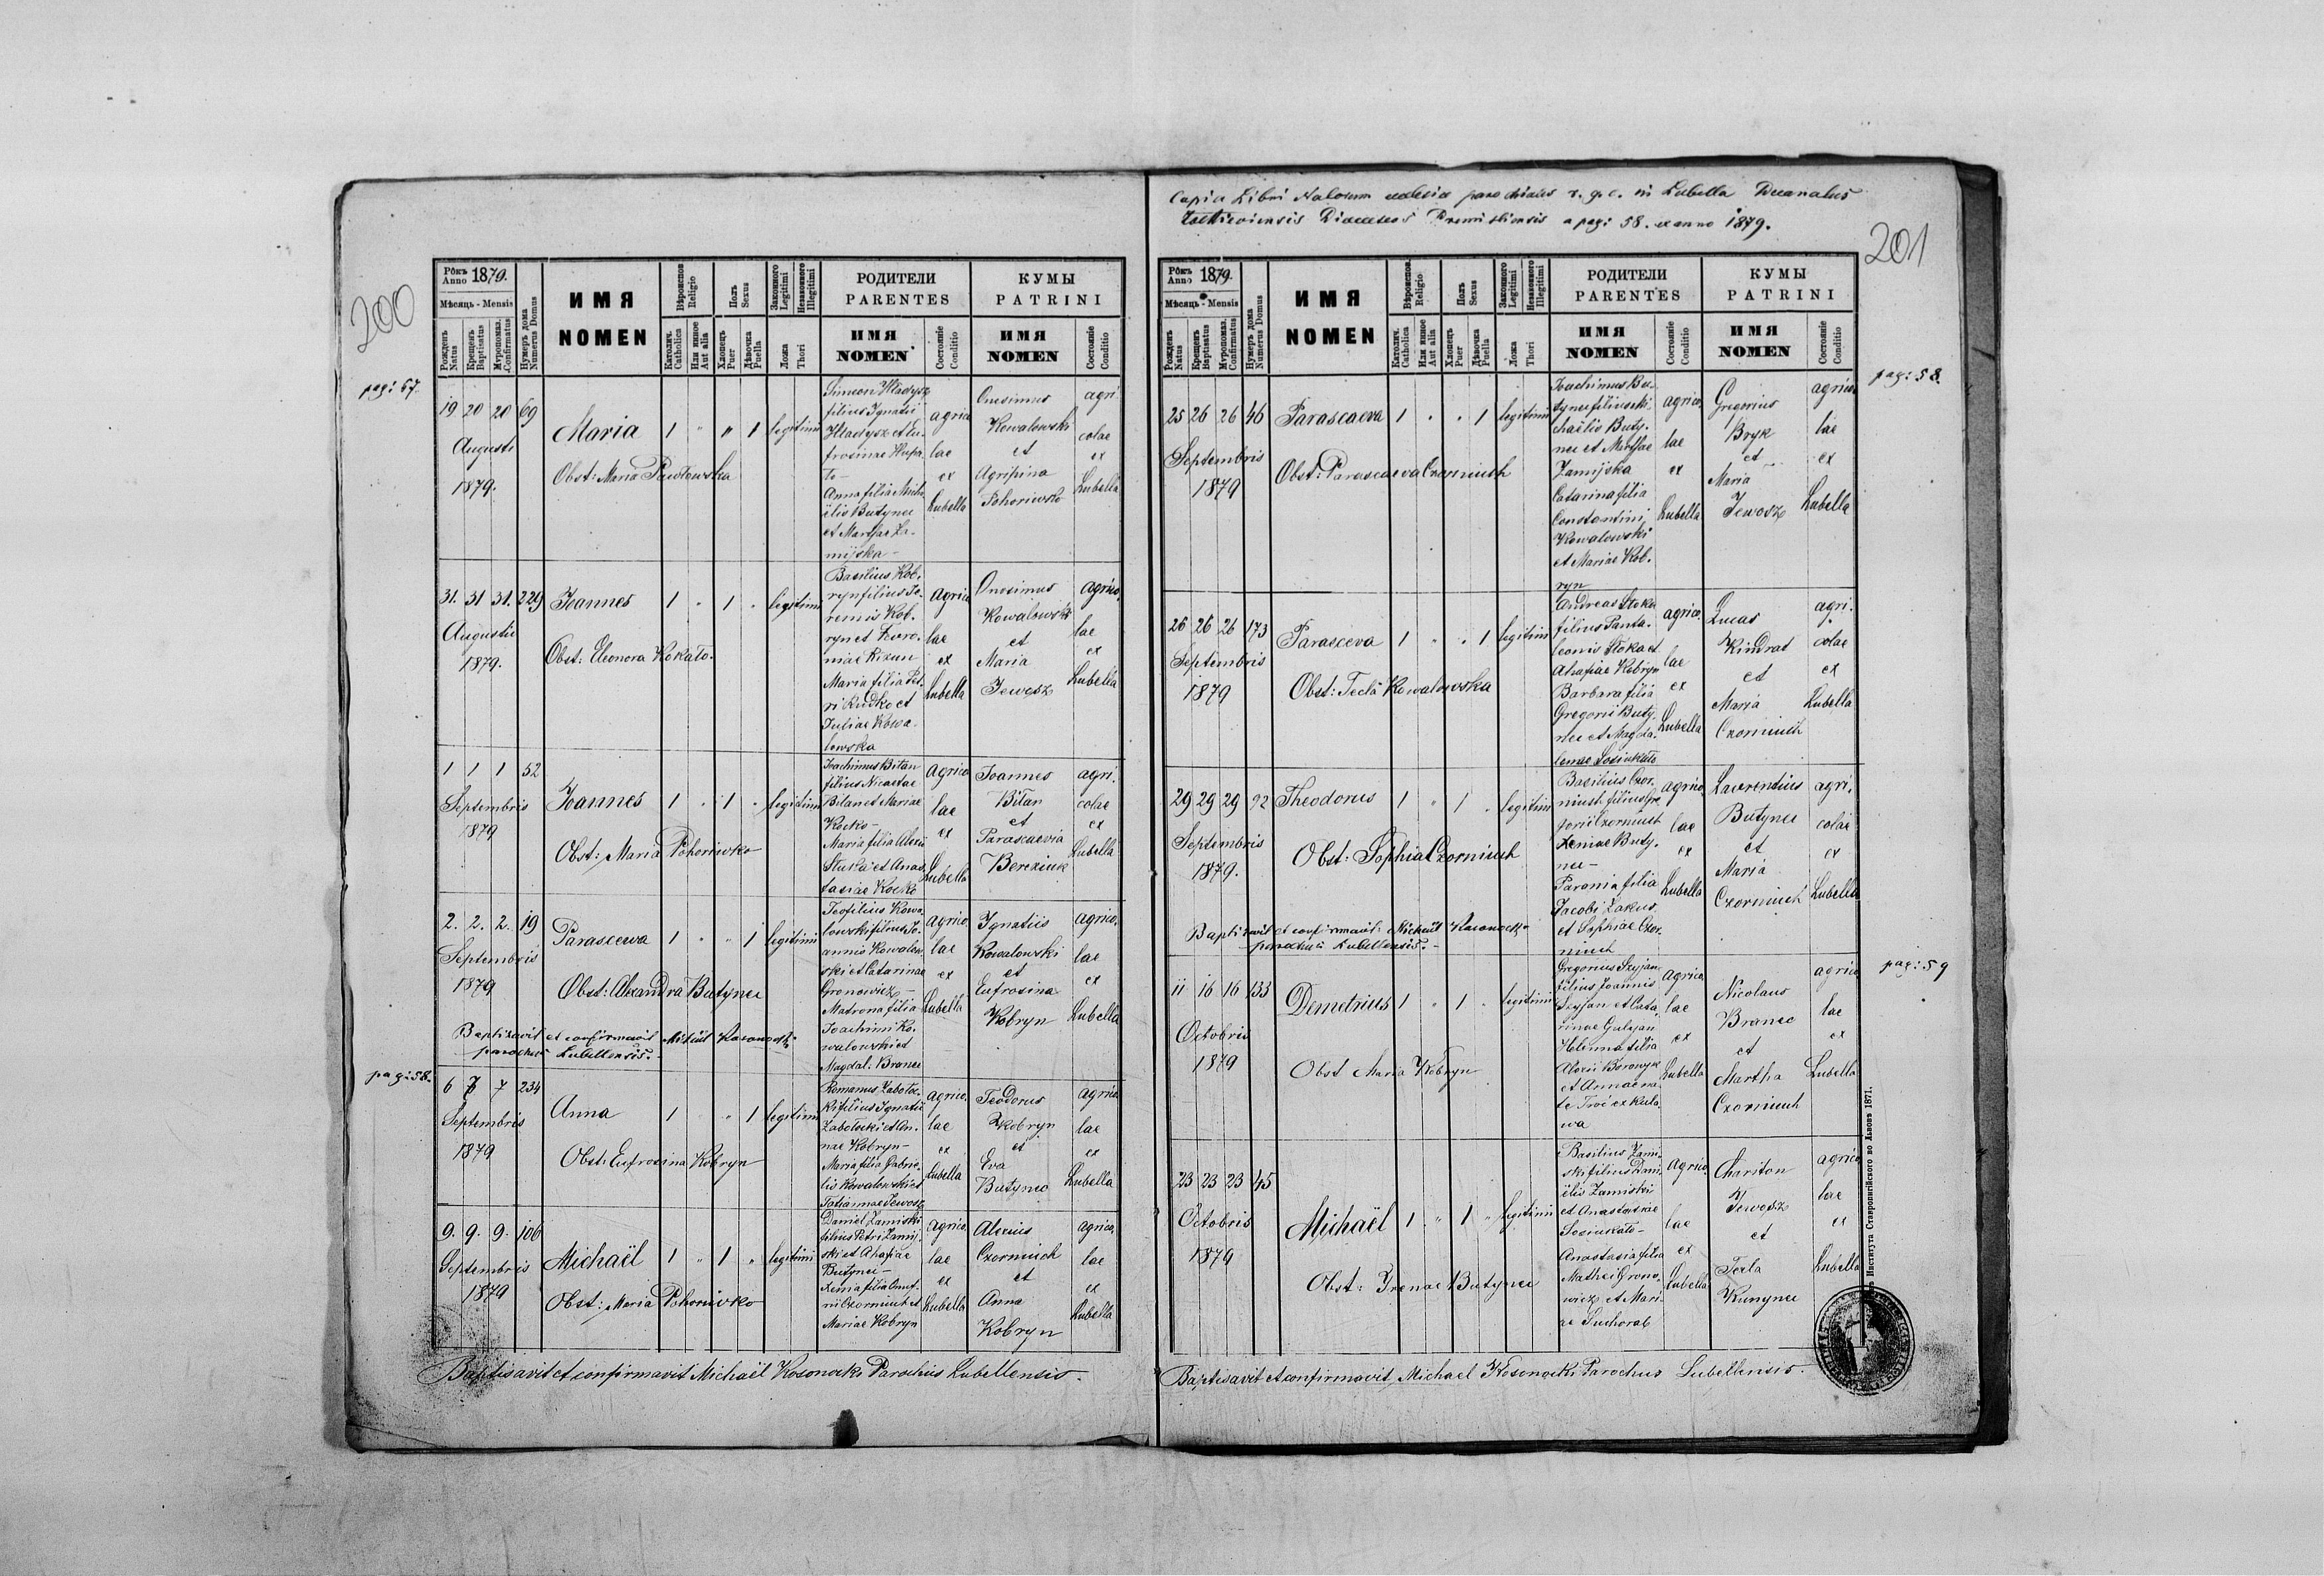 200
pag: 57.
Рôкъ Anno 1879.
Мѣсяць - Mensis
Рожденъ Natus
Крещенъ Baptisatus
Муропомаз. Confirmatus
Нумеръ дома Numerus Domus
ИМЯ
NOMEN
Вѣроисповѣд. Religio
Католич. Catholica
Или инное Aut alia
Полъ Sexus
Хлопець Puer
Дѣвочка Puella
Законного Legitimi
Незаконного Illegitimi
Ложа Thori
РОДИТЕЛИ
PARENTES
ИМЯ
NOMEN
Состояніе Conditio
КУМЫ
PATRINI
ИМЯ
NOMEN
Состояніе Conditio
19 20 20 69
Augusti
1879.
Maria 1 " " 1 legitimi
Obst: Maria Pawłowska
Simeon Hładysz
filius Ignatii
Hładysz et Eu-
frosinae
Anna filia Micha-
ëlis Butynec
et Marthae Za-
mijska -
agrico
lae
ex
Lubella
Onesimus
Kowalowski
et
Agripina
Pohoriwko
agri
colae
ex
Lubella
31. 31 31. 229
Augusti
1879.
Joannes 1 " 1 . legitimi
Obst: Eleonora Kokato.
Basilius Kob.
ryn filius Je-
remis Kob.
ryn et Fewro.
niae Rizun
Maria filia Pet-
ri Rudko et
Juliae Kowa-
lowska
agrico
lae
ex
Lubella
Onesimus
Kowalowski
et
Maria
Jewosz
agrico.
lae
ex
Lubella
1 1 1 52
Septembris
1879
Joannes 1 . 1 . legitimi
Obst: Maria Pohoriwko
Joachimus Bitan
filius Nicaetae
Bitan et Mariae
Kocko -
Maria filia Alexii
Stuka et Anas
tasiae Kocko
agrico
lae
ex
Lubella
Joannes
Bitan
et
Parascaevia
Bereziuk
agri.
colae
ex
Lubella
2. 2. 2. 19
Septembris
1879
Parascewa 1 . " 1 legitimi
Obst: Alexandra Butynec
Teofilius Kowa
lowski filius Jo-
annis Kowalow
ski et Catarinae
Gronowicz -
Matrona filia
Joachimi Ko.
walowski et
Magdal: Branec
agrico.
lae
ex
Lubella
Ignatiis
Kowalowski
et
Eufrosina
Kobryn
agrico.
lae
ex
Lubella
Baptizavit et confirmavit Michael Kosonocki
parochus Lubellensis. -
pag: 58.
6 7 7 234
Septembris
1879
Anna 1 " 1 legitimi
Obst: Eufrosina Kobryn
Romanus Zabołoc-
ki filius Ignatii
Zabołocki et An.
nae Kobryn -
Maria filia Gabrie-
lis Kowalowski et
Tatiannae Jewosz
agrico.
lae
ex
Lubella
Teodorus
Kobryn
et
Eva
Butynec
agrico
lae
ex
Lubella
9. 9. 9. 106
Septembris
1879
Michaël 1 " 1 " legitimi
Obst: Maria Pohoriwko
Daniel Zamiski
filius Petri Zamij-
ski et Ahafiae
Butynec -
Xenia filia Onuf-
rii Czorniuch et
Mariae Kobryn
agrico
lae
ex
Lubella
Alexius
Czorniuch
et
Anna
Kobryn
agrico.
lae
ex
Lubella
Baptisavit et confirmavit Michaël Kosonocki Parochus Lubellensis.
Copia Libri Natorum ecclesiae parochialis r. g. c. in Lubella Decanatus
Diaeceseos Premisliensis a pag: 58. ex anno 1879.
201
pag: 58.
Рôкъ Anno 1879.
Мѣсяць - Mensis
Рожденъ Natus
Крещенъ Baptisatus
Муропомаз. Confirmatus
Нумеръ дома Numerus Domus
ИМЯ
NOMEN
Вѣроисповѣд. Religio
Католич. Catholica
Или инное Aut alia
Полъ Sexus
Хлопець Puer
Дѣвочка Puella
Законного Legitimi
Незаконного Illegitimi
Ложа Thori
РОДИТЕЛИ
PARENTES
ИМЯ
NOMEN
Состояніе Conditio
КУМЫ
PATRINI
ИМЯ
NOMEN
Состояніе Conditio
25 26 26 46
Septembris
1879
Parascaeva 1 . . 1 legitimi
Obst: Parascaeva Czorniuch
Joachimus Bu-
tynec filius Mi-
chaëlis Buty-
nec et Marthae
Zamijska
Catarina filia
Constantini
Kowalowski
et Mariae Kob.
ryn
agrico
lae
ex
Lubella
Gregorius
Bryk
et
Maria
Jewosz
agrico
lae
ex
Lubella
26 26 26 173
Septembris
1879
Parasceva 1 " . 1 legitimi
Obst: Tecla Kowalowska
Andreas Stoka
filius Panta-
leonis Stoka et
Ahafiae Kobryn
Barbara filia
Gregorii Buty.
nec et Magda-
lenae Sosiukało
agrico.
lae
ex
Lubella
Lucas
Kindrat
et
Maria
Czorniuch
agri.
colae
ex
Lubella
29 29 29 92
Septembris
1879.
Theodorus 1 " 1 . legitimi
Obst: Sophia Czorniuch
Basilius Czor-
niuch filius Gre
gorii Czorniuch
Xeniae Buty-
nec -
Parania filia
Jacobi Zakus
et Sophiae Czor-
niuch
agrico
lae
ex
Lubella
Laurentius
Butynec
et
Maria
Czorniuch
agri.
colae
ex
Lubella
Baptizavit et confirmavit Michael Kosonocki
parochus Lubellensis. -
pag: 59
11 16 16 133
Octobris
1879
Demetrius 1 " 1 . legitimi
Obst Maria Kobryn
Gregorius Szyjan
filius Joannis
Szyjan et Cata-
rinae Gulyan
Helenna filia
Alexii Borowyk
et Annae na-
te Troć ex Kula.
wa
agrico
lae
ex
Lubella
Nicolaus
Branec
et
Martha
Czorniuch
agrico
lae
ex
Lubella
23 23 23 45
Octobris
1879
Michaël 1 " 1 " legitimi
Obst: Irenae Butynec
Basilius Zami-
ski filius Dani-
ëlis Zamiski
et Anastasiae
Sosiukało -
Anastasia filia
Mathei Grono.
wicz et Mari-
ae Suchorab
agrico.
lae
ex
Lubella
Chariton
Jewosz
et
Tecla
Kunynec
agrico
lae
ex
Lubella
Baptisavit et confirmavit Michael Kosonocki Parochus Lubellensis.
Института Ставропигійского во Львовѣ 1871.